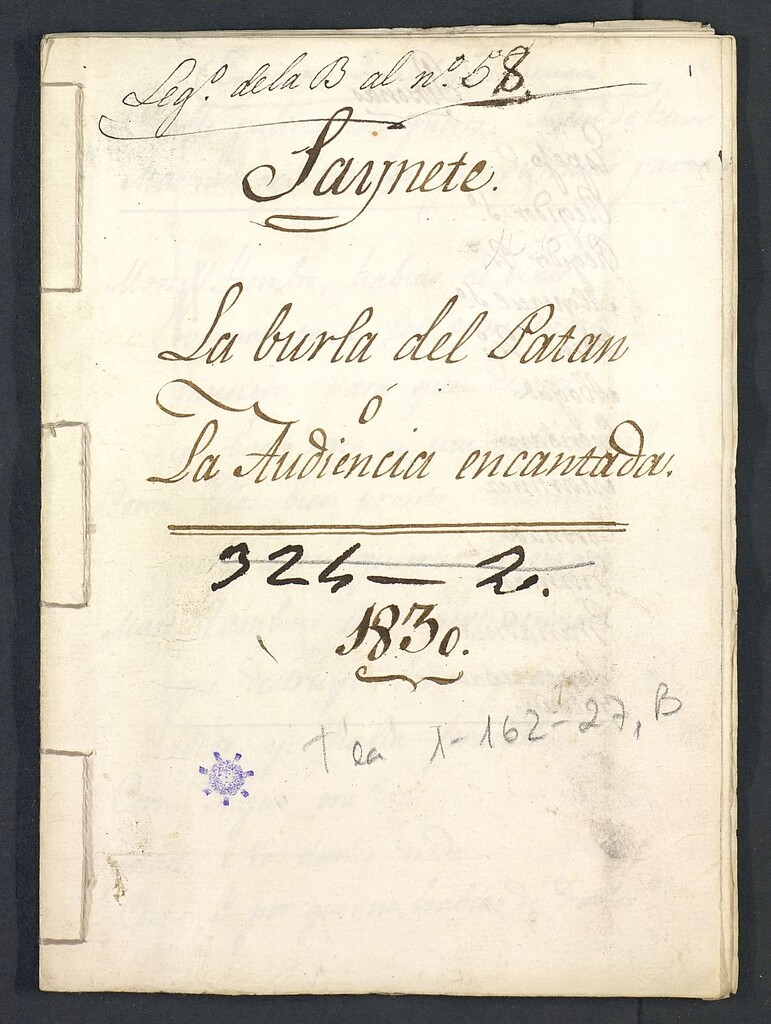 Legº. dela B al nº. 58.
1
Saynete.
La burla del Patan
ó
La Audiencia encantada.
324 — 2.
1830.
Tea 1-162-27, B